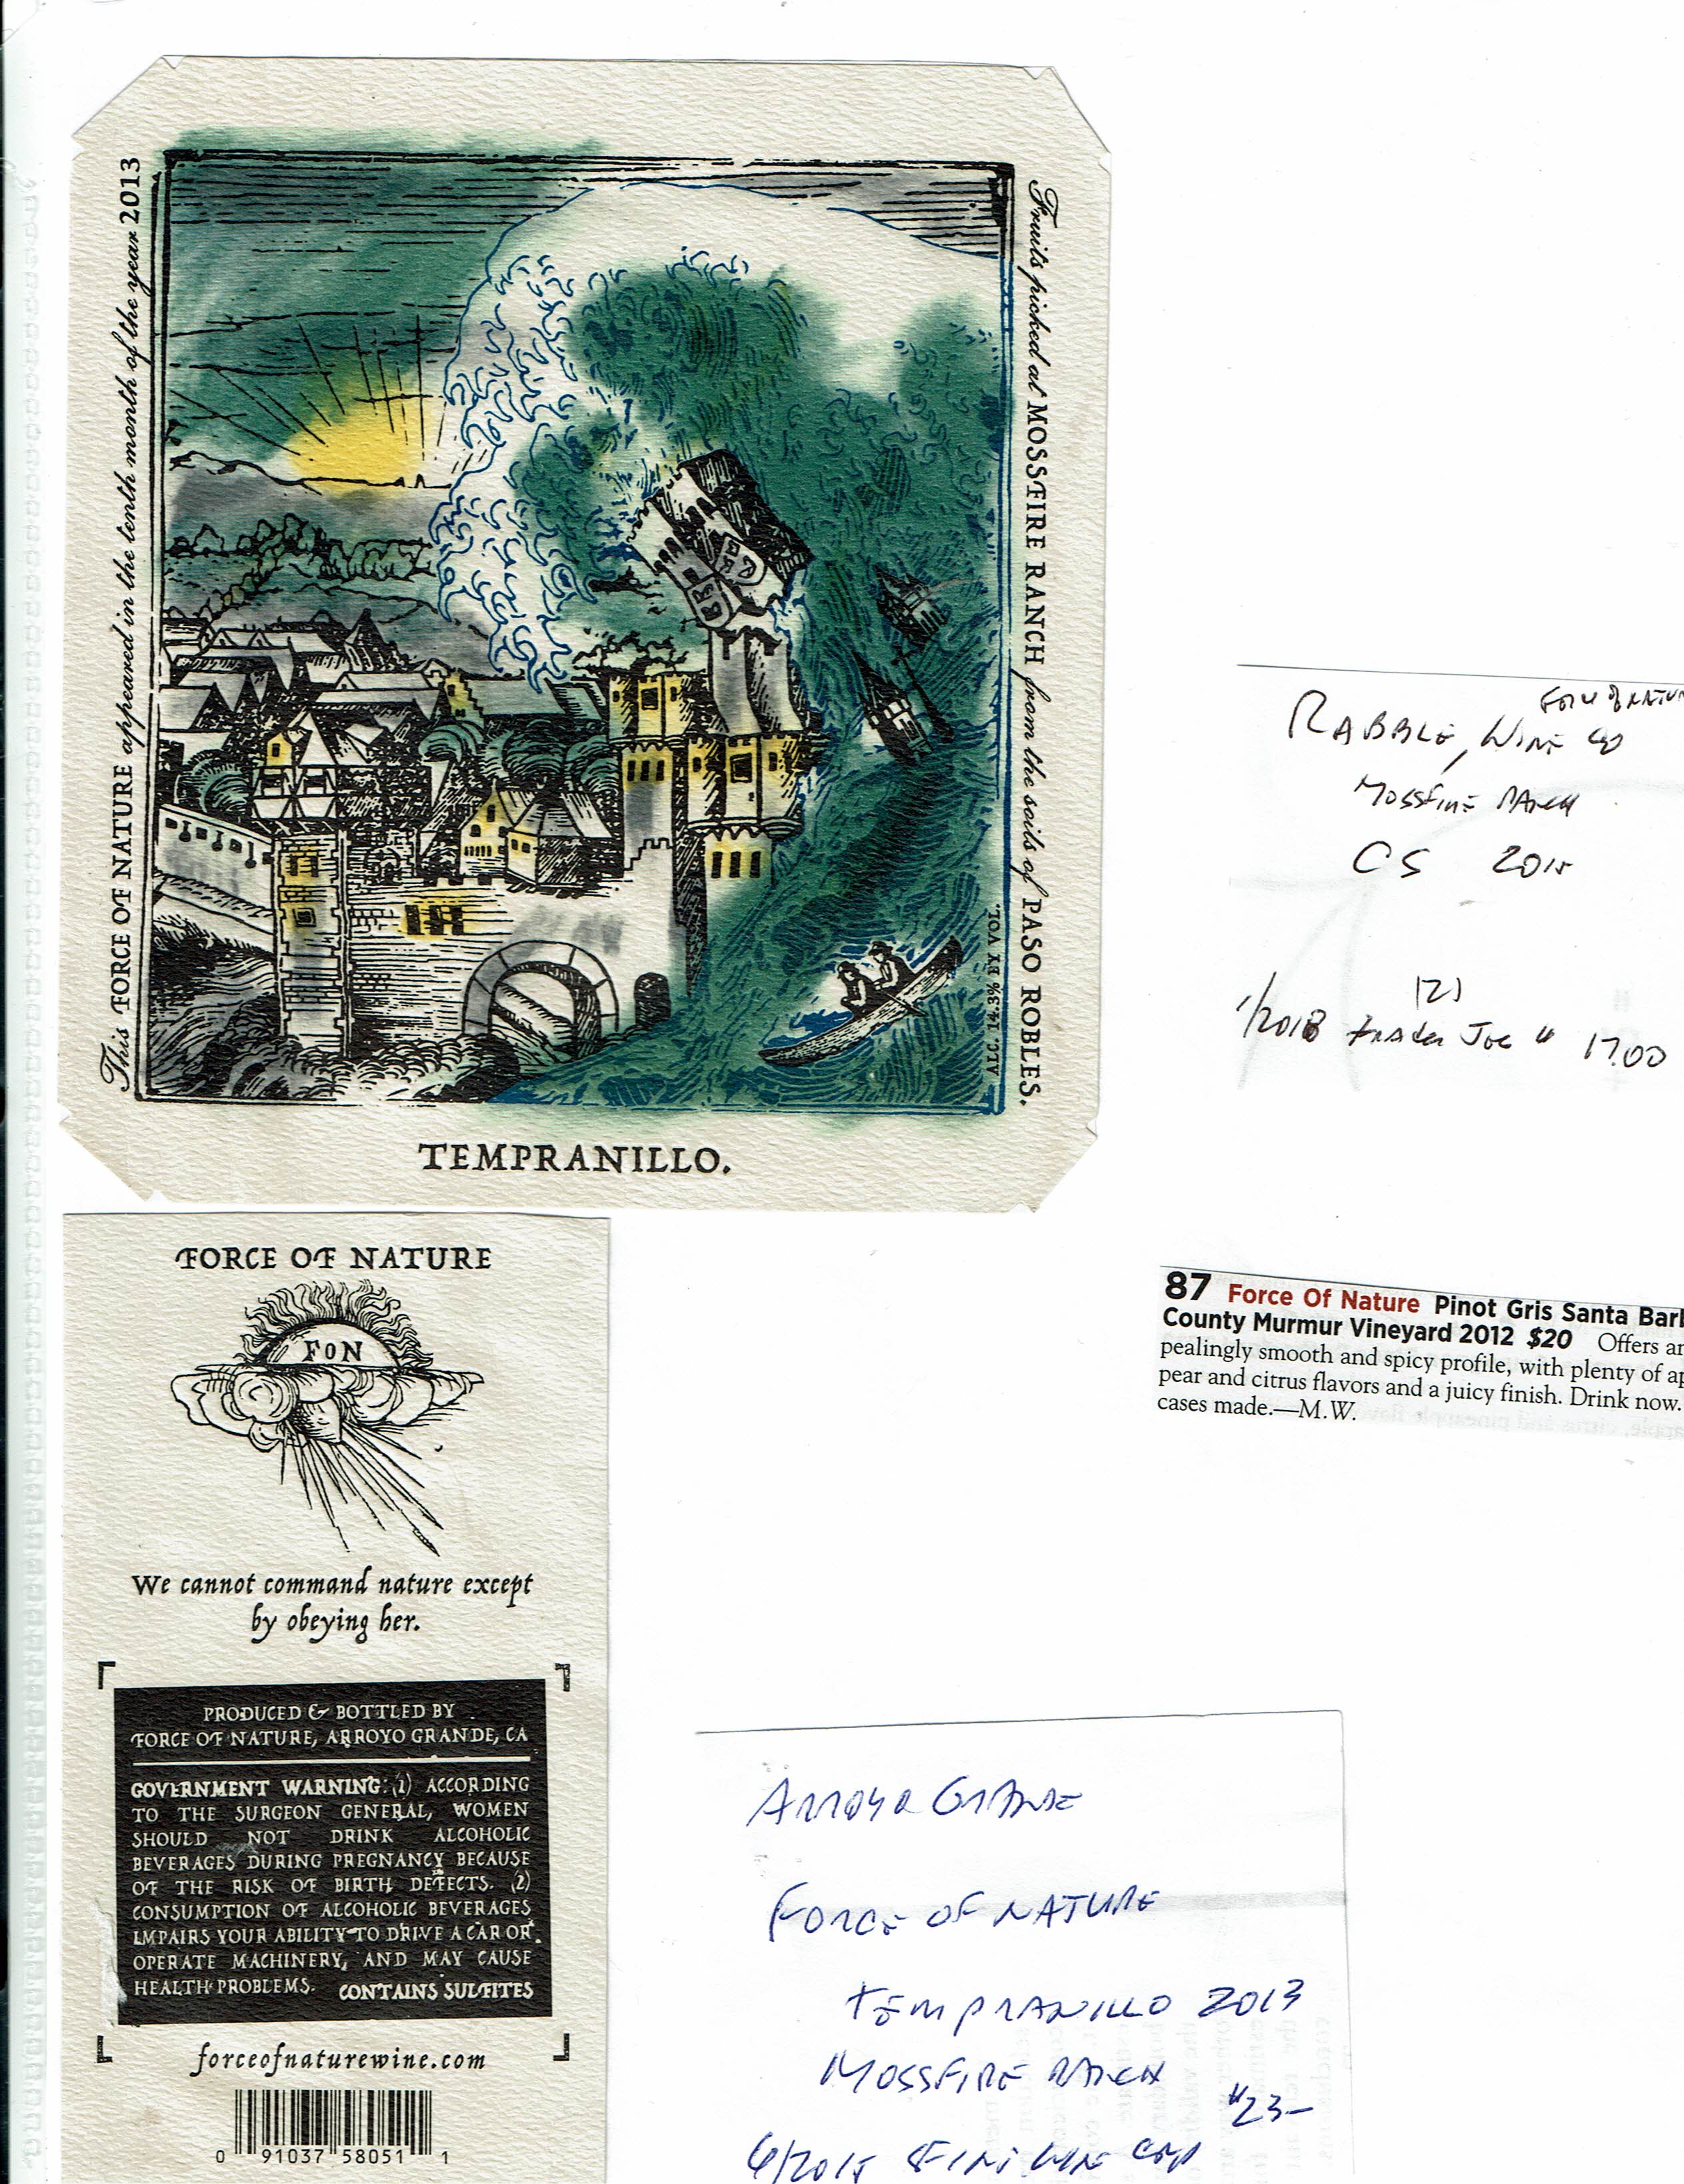 This FORCE OF NATURE appeared in the tenth month of the year 2013
Fruits picked at MOSSFIRE RANCH from the soils of PASO ROBLES.
ALC. 14.3% BY VOL.
TEMPRANILLO.
FORCE OF NATURE
FON
We cannot command nature except
by obeying her.
PRODUCED & BOTTLED BY
FORCE OF NATURE, ARROYO GRANDE, CA
GOVERNMENT WARNING: (1) ACCORDING
TO THE SURGEON GENERAL, WOMEN
SHOULD NOT DRINK ALCOHOLIC
BEVERAGES DURING PREGNANCY BECAUSE
OF THE RISK OF BIRTH DEFECTS. (2)
CONSUMPTION OF ALCOHOLIC BEVERAGES
IMPAIRS YOUR ABILITY TO DRIVE A CAR OR
OPERATE MACHINERY, AND MAY CAUSE
HEALTH PROBLEMS. CONTAINS SULFITES
forceofnaturewine.com
0 91037 58051 1
FORCE OF NATUR
RABBLE, WINE CO
MOSSFIRE RANCH
CS 2015
(2)
1/2018 TRADER JOE # 17.00
87 Force Of Nature Pinot Gris Santa Barb
County Murmur Vineyard 2012 $20 Offers an
pealingly smooth and spicy profile, with plenty of ap
pear and citrus flavors and a juicy finish. Drink now.
cases made.—M.W.
ARROYO GRANDE
FORCE OF NATURE
TEMPRANILLO 2013
MOSSFIRE RANCH
$23-
6/2015 WINE